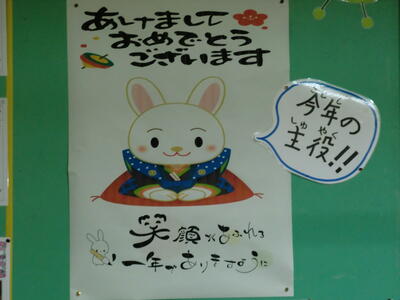 あけまして
おめでとう
ございます
今年の
ことし
主役!!
しゅやく
笑顔があふれる
一年でありますように